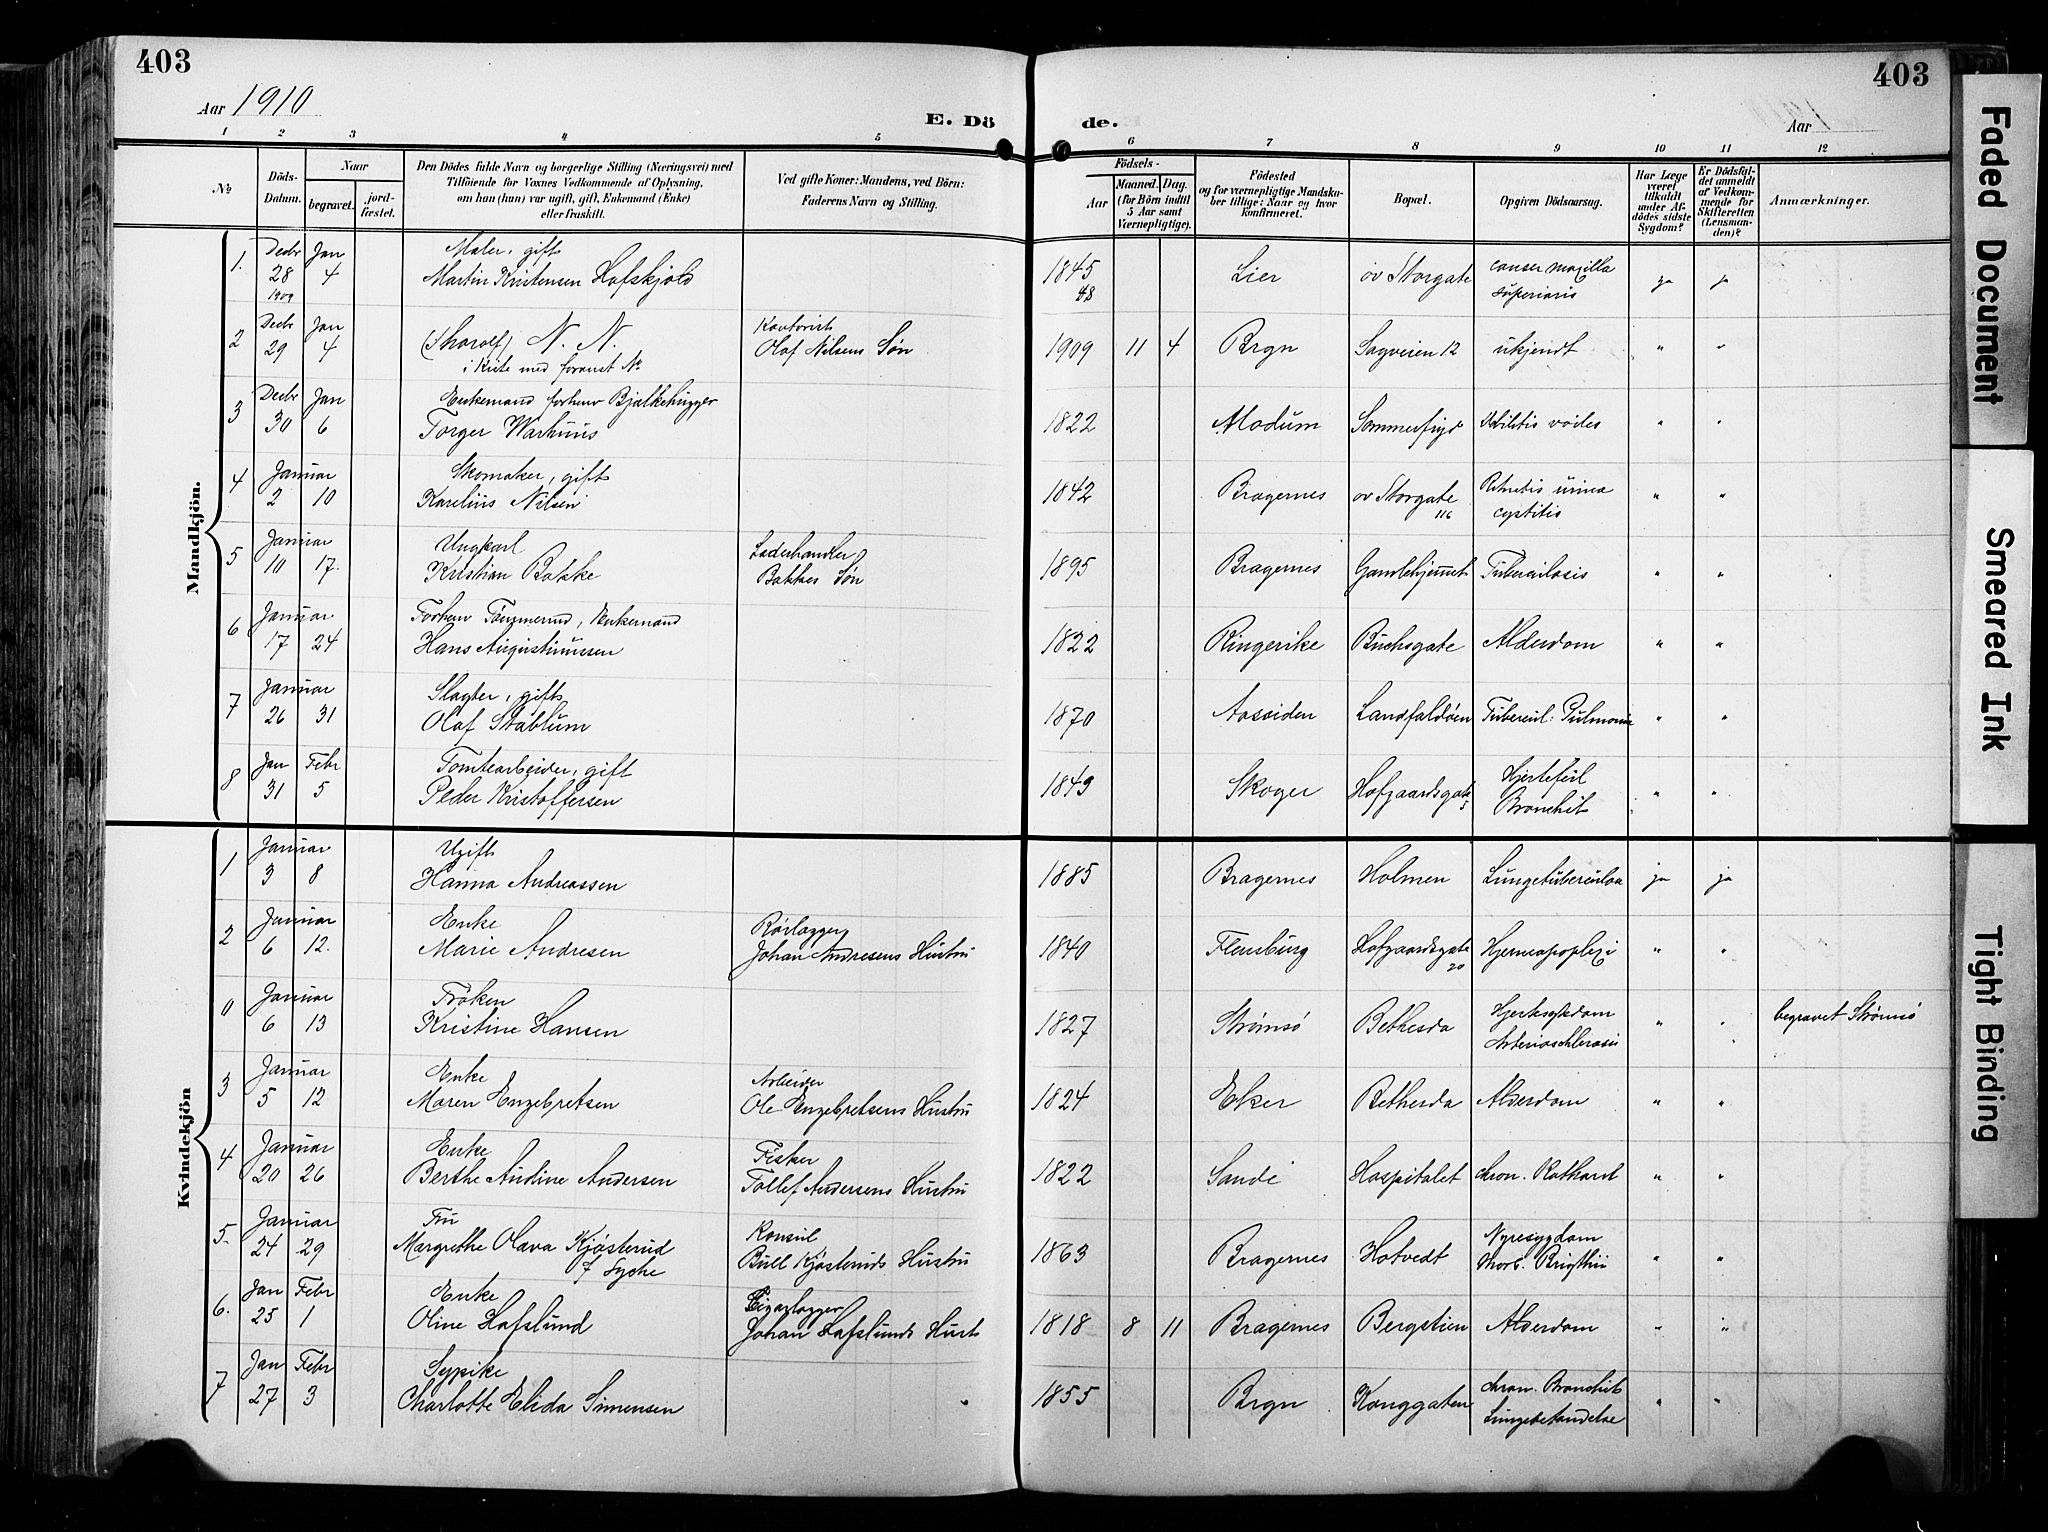 403
403
Aar 1910
E. Dö
de.
Aar
1 2 3 4 5 6 7 8 9 10 11 12
No
Döds-Datum.
Naar
begravet.
jordfæstet.
Den Dödes fulde Navn og borgerlige Stilling (Næringsvei) med Tilföiende for Voxnes Vedkommende af Oplysning, om han (hun) var ugift, gift, Enkemand (Enke) eller fraskilt.
Ved gifte Koner: Mandens, ved Börn: Faderens Navn og Stilling.
Födsels-
Aar
Maaned. Dag.
(for Börn indtil 5 Aar samt Værnepligtige).
Födested og for værnepligtige Mandskaber tillige: Naar og hvor konfirmeret.
Bopæl.
Opgiven Dödsaarsag.
Har Læge været tilkaldt under Afdödes sidste Sygdom?
Er Dödsfaldet anmeldt af Vedkommende for Skifteretten (Lensmanden)?
Anmærkninger.
Mandkjön.
1. Decbr 28 1909 Jan 4 Maler, gift
Martin Kristensen Hofskjold 1845 48 Lier öv Storgate cancer maxilla superioris ja ja
2 Decbr 29 Jan 4 (Thorolf) N. N.
i Kiste med foranst No
Kontorist
Olaf Nilsens Sön 1909 11 4 Brgn Sagveien 12 ukjendt " "
3 Decbr 30 Jan 6 Enkemand forhenv Bjælkehugger
Torger Warhuus 1822 Modum Sommerfryd "  "
4 Januar 2 10 Skomaker, gift
Karelius Nilsen 1842 Bragernes öv Storgate 116 urina
cystitis " "
5 Januar 10 17. Ungkarl
Kristian Bakke
Læderhandler
Bakkes Sön 1895 Bragernes Gamlehjemmet Tuberculosis " "
6 Januar 17 24 Forhenv Tömmermd, Enkemand
Hans Augustinussen 1822 Ringerike Buchsgate Alderdom " "
7 Januar 26 31 Slagter, gift
Olaf Stablum 1870 Aassiden Landfaldöen Tubercul: Pulmonum " "
8 Jan 31 Febr 5 Tomtearbeider, gift
Peder Kristoffersen 1849 Skoger Hofgaardsgate 5 Hjertefeil
Bronchit " "
Kvindekjön
1 Januar 3 8 Ugift
Hanna Andreassen 1885 Bragernes Holmen Lungetuberculose ja ja
2 Januar 6 12. Enke
Marie Andresen
Rörlægger
Johan Andresens Hustru 1840 Flensburg Hofgaardsgate 20 Hjerneapoplexi " "
0 Januar 6 13 Fröken
Kristine Hansen 1827 Strömsö Bethesda Hjertesygdom
Arterioschlerosis " " begravet Strömsö
3 Januar 5 12 Enke
Maren Engebretsen
Arbeider
Ole Engebretsens Hustru 1824 Eker Bethesda Alderdom " "
4 Januar 20 26 Enke
Berthe Andine Andersen
Fisker
Tollef Andersens Hustru 1822 Sande Hospitalet chron. Katharrh " "
5. Januar 24 29 Fru
Margrethe Olava Kjösterud
f Lyche
Konsul
Bull Kjösteruds Hustru 1863 Bragernes Hotvedt Nyresygdom
Morb. Brigthii " "
6. Jan 25 Febr 1 Enke
Oline Hafslund
Johan Hafslunds Hust 1818 8 11 Bragernes Bergstien Alderdom " "
7 Jan 27 Febr 3 Sypike
Charlotte Elida Simensen 1855 Brgn Konggaten chron. Bronchit
Lungebetændelse " "
Faded Document
Smeared Ink
Tight Binding